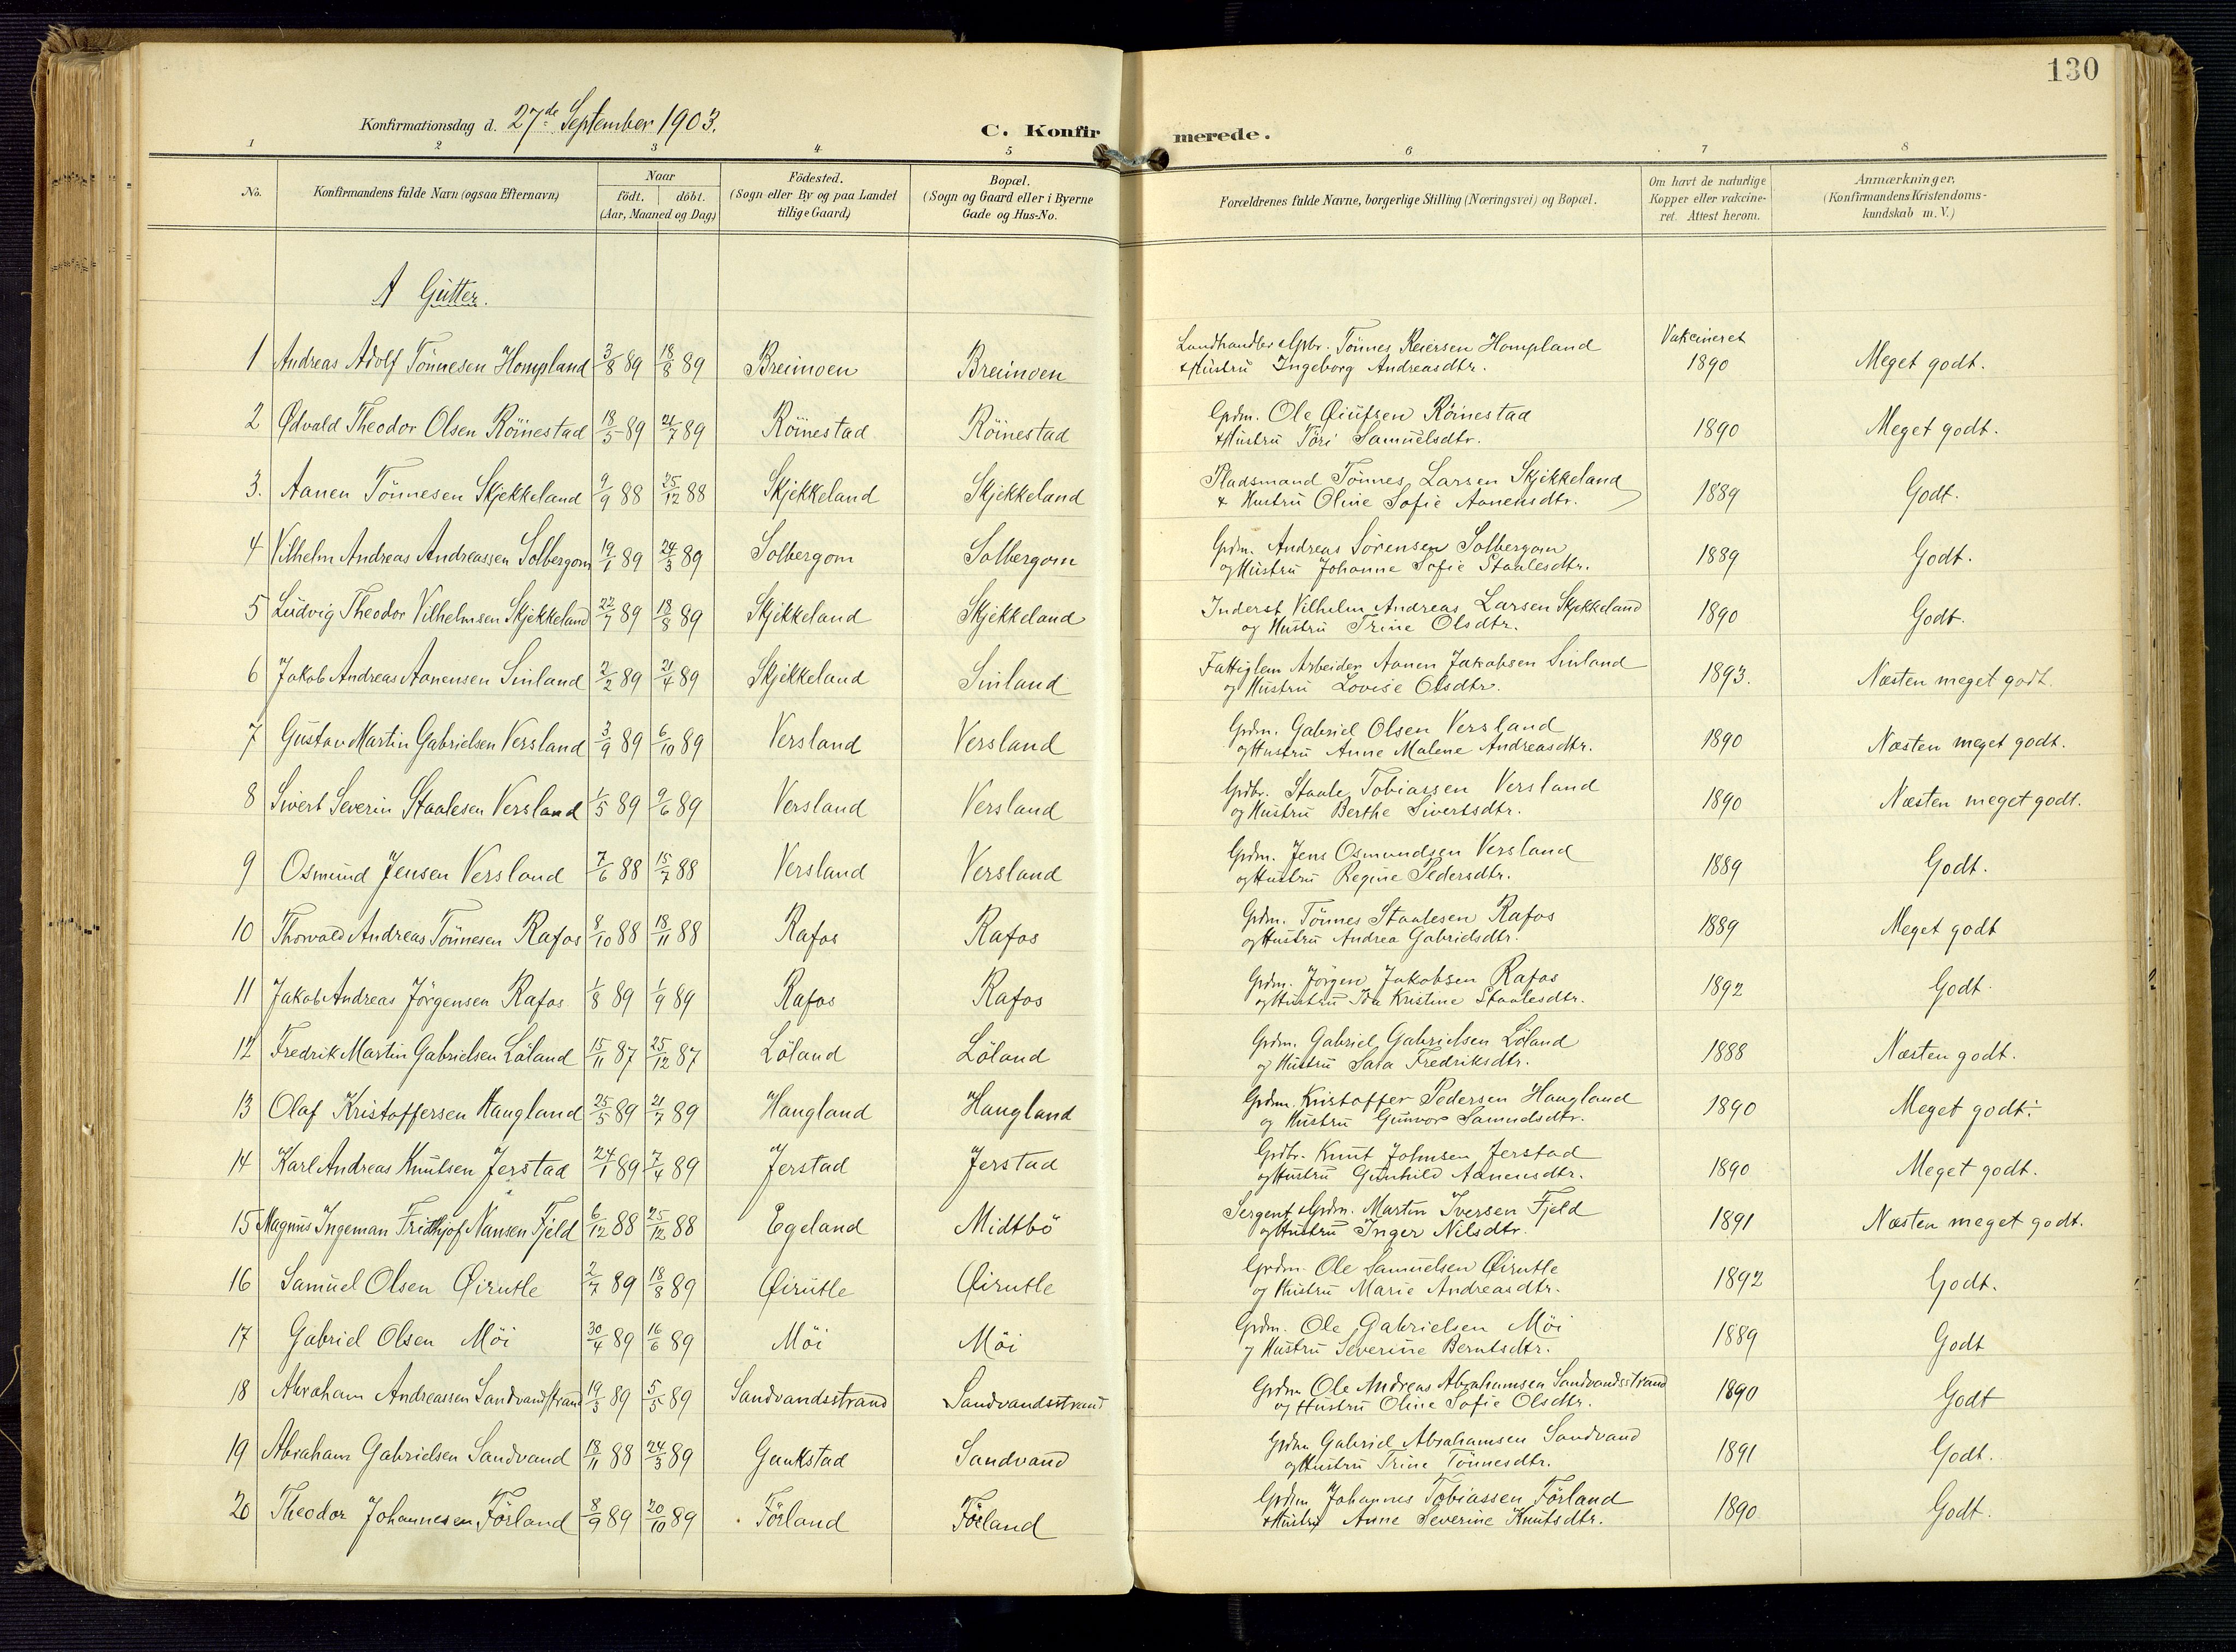 130
Konfirmationsdag d. 27de September 1903.
C. Konfirmerede.
1 2 3 4 5 6 7 8
No. Konfirmandens fulde Navn (ogsaa Efternavn) Naar födt. döbt. (Aar, Maaned og Dag) Födested. (Sogn eller By og paa Landet tillige Gaard) Bopæl. (Sogn og Gaard eller i Byerne Gade og Hus-No. Forældrenes fulde Navne, borgerlige Stilling (Næringsvei) og Bopæl. Om havt de naturlige Kopper eller vakcineret. Attest herom. Anmærkninger. (Konfirmandens Kristendomskundskab m. V.)
A Gutter.
1 Andreas Adolf Tönnesen Hompland 3/8 89 18/8 89 Breimoen Breimoen Landhandler & Gbr. Tönnes Reiersen Hompland Vakcineret 1890 Meget godt.
& Hustru Ingeborg Andreasdtr.
2 Ødvald Theodor Olsen Röinestad 18/5 89 21/7 89 Röinestad Röinestad Grdm. Ole Øiufsen Röinestad 1890 Meget godt.
& Hustru Töri Samuelsdtr.
3. Aanen Tönnesen Skjekkeland 9/9 88 25/12 88 Skjekkeland Skjekkeland Pladsmand Tönnes Larsen Skjekkeland 1889 Godt.
& Hustru Oline Sofie Aanensdtr.
4 Vilhelm Andreas Andreassen Solbergom 19/1 89 24/3 89 Solbergom Solbergom Grdm. Andreas Sörensen Solbergom 1889 Godt.
og Hustru Johanne Sofie Staalesdtr.
5 Ludvig Theodor Vilhelmsen Skjekkeland 22/7 89 18/8 89 Skjekkeland Skjekkeland Inderst Vilhelm Andreas Larsen Skjekkeland 1890 Godt.
og Hustru Trine Olsdtr.
6 Jakob Andreas Aanensen Sinland 2/2 89 21/4 89 Skjekkeland Sinland Fattiglem Arbeider Aanen Jakobsen Sinland 1893. Næsten meget godt.
og Hustru Lovise Olsdtr.
7 Gustav Martin Gabrielsen Versland 3/9 89 6/10 89 Versland Versland Grdm. Gabriel Olsen Versland 1890 Næsten meget godt.
og Hustru Anne Malene Andreasdtr.
8 Sivert Severin Staalesen Versland 1/5 89 9/6 89 Versland Versland Grdbr. Staale Tobiassen Versland 1890 Næsten meget godt.
og Hustru Berthe Sivertsdtr.
9 Osmund Jensen Versland 7/6 88 15/7 88 Versland Versland Grdm. Jens Osmundsen Versland 1889 Godt.
og Hustru Regine Pedersdtr.
10 Thorvald Andreas Tönnesen Rafos 8/10 88 18/11 88 Rafos Rafos Grdm. Tönnes Staalesen Rafos 1889 Meget godt
og Hustru Andrea Gabrielsdtr.
11 Jakob Andreas Jörgensen Rafos 1/8 89 1/9 89 Rafos Rafos Grdm. Jörgen Jakobsen Rafos 1892 Godt.
og Hustru Ida Kristine Staalesdtr.
12 Fredrik Martin Gabrielsen Löland 15/11 87 25/12 87 Löland Löland Grdm. Gabriel Gabrielsen Löland 1888 Næsten godt.
og Hustru Sara Fredriksdtr.
13 Olaf Kristoffersen Haugland 25/5 89 21/7 89 Haugland Haugland Grdm. Kristoffer Pedersen Haugland 1890 Meget godt÷
og Hustru Gunvor Samuelsdtr.
14 Karl Andreas Knutsen Jerstad 24/1 89 7/4 89 Jerstad Jerstad Grdbr. Knut Johnsen Jerstad 1890 Meget godt.
og Hustru Gunhild Aanensdtr.
15 Magnus Ingeman Fridthjof Nansen Fjeld 6/12 88 25/12 88 Egeland Midtbö Sergent & Grdm. Martin Iversen Fjeld 1891 Næsten meget godt.
og Hustru Inger Nilsdtr.
16 Samuel Olsen Øirutle 2/7 89 18/8 89 Øirutle Øirutle Grdm. Ole Samuelsen Øirutle 1892 Godt.
og Hustru Marie Andreasdtr.
17 Gabriel Olsen Möi 30/4 89 16/6 89 Möi Möi Grdm. Ole Gabrielsen Möi 1889 Godt
og Hustru Severine Berntsdtr.
18 Abraham Andreassen Sandvandstrand 19/3 89 5/5 89 Sandvandsstrand Sandvandsstrand Grdm Ole Andreas Abrahamsen Sandvandsstrand 1890 Godt
og Hustru Oline Sofie Olsdtr.
19 Abraham Gabrielsen Sandvand 18/11 88 24/3 89 Gaukstad Sandvand Grdm Gabriel Abrahamsen Sandvand 1891 Godt.
og Hustru Trine Tönnesdtr.
20 Theodor Johannesen Förland 8/9 89 20/10 89 Förland Förland Grdm Johannes Tobiassen Förland 1890 Godt.
& Hustru Anne Severine Knutsdtr.